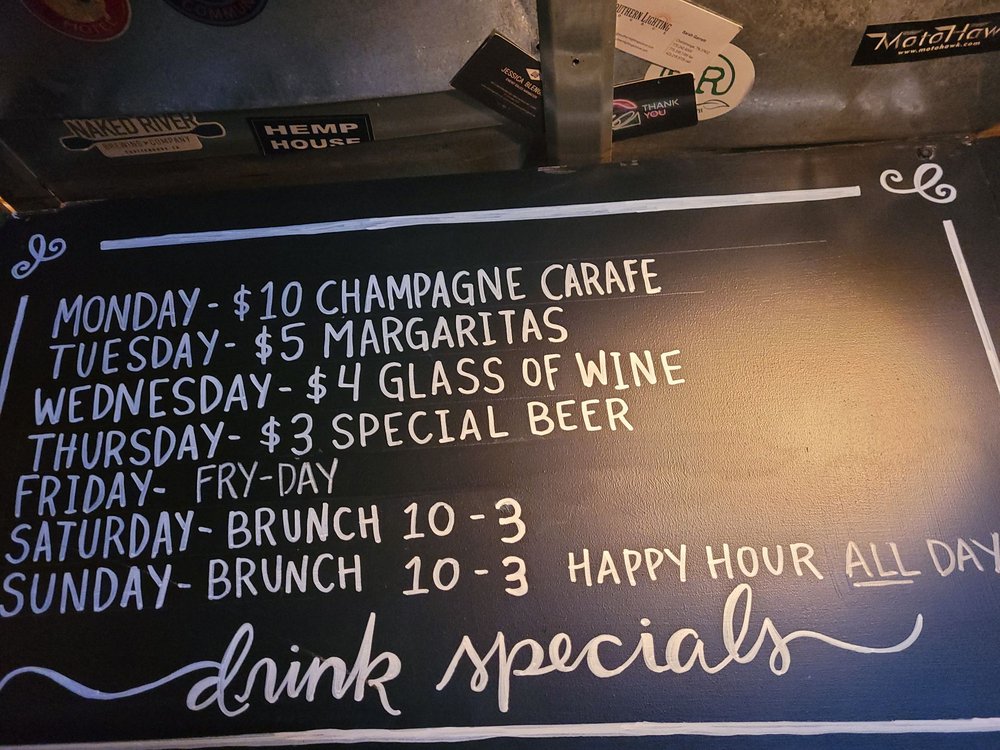 COMMUN
NAKED RIVER
BREWING COMPANY
HEMP
HOUSE
JESSICA BLEV
SOUTHERN LIGHTING
THANK
YOU
R
MotoHawk
www.motohawk.com
MONDAY- $10 CHAMPAGNE CARAFE
TUESDAY- $5 MARGARITAS
WEDNESDAY- $4 GLASS OF WINE
THURSDAY- $3 SPECIAL BEER
FRIDAY- FRY-DAY
SATURDAY- BRUNCH 10-3
SUNDAY- BRUNCH 10-3 HAPPY HOUR ALL DAY
drink specials